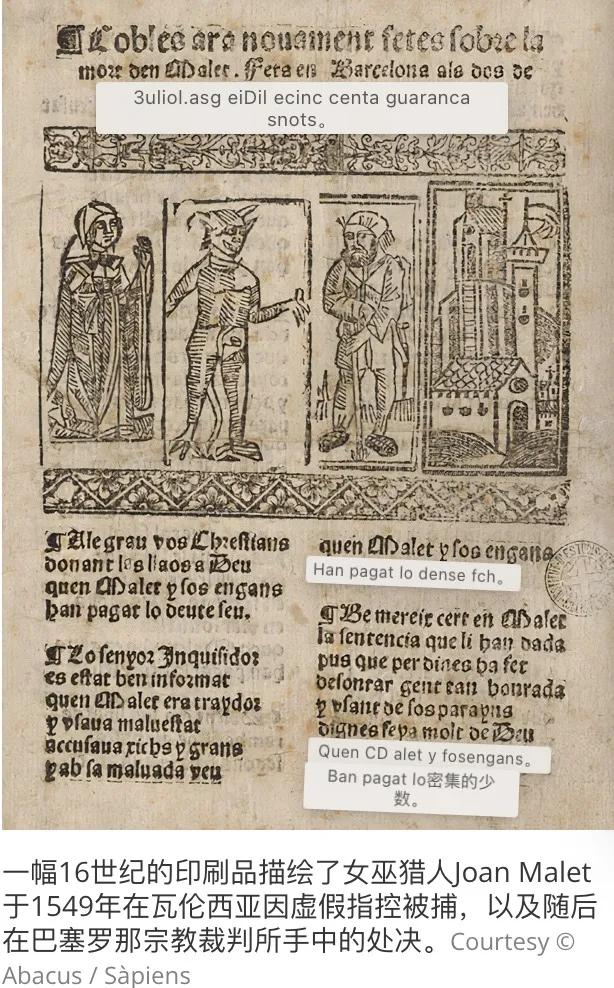 ¶Cobles ara nouament fetes sobre la
mort den Malet. Feta en Barcelona als dos de
3uliol.asg eiDil ecinc centa guaranca
snots。
¶Alegrau vos Chrestians
donant les llaors a Deu
quen Malet y sos engans
han pagat lo deute seu.
¶Lo senyor Inquisidor
es estat ben informat
quen Malet era traydor
y vsaua maluestat
accusaua richs y grans
y ab sa maluada veu
quen Malet y sos engans
Han pagat lo dense fch。
¶Be mereix cert en Malet
la sentencia que li han dada
pus que per dines ha fet
desonrar gent tan honrada
y vsant de sos parayns
dignes seya molt de Deu
Quen CD alet y fosengans。
Ban pagat lo密集的少
数。
一幅16世纪的印刷品描绘了女巫猎人Joan Malet
于1549年在瓦伦西亚因虚假指控被捕，以及随后
在巴塞罗那宗教裁判所手中的处决。Courtesy ©
Abacus / Sàpiens